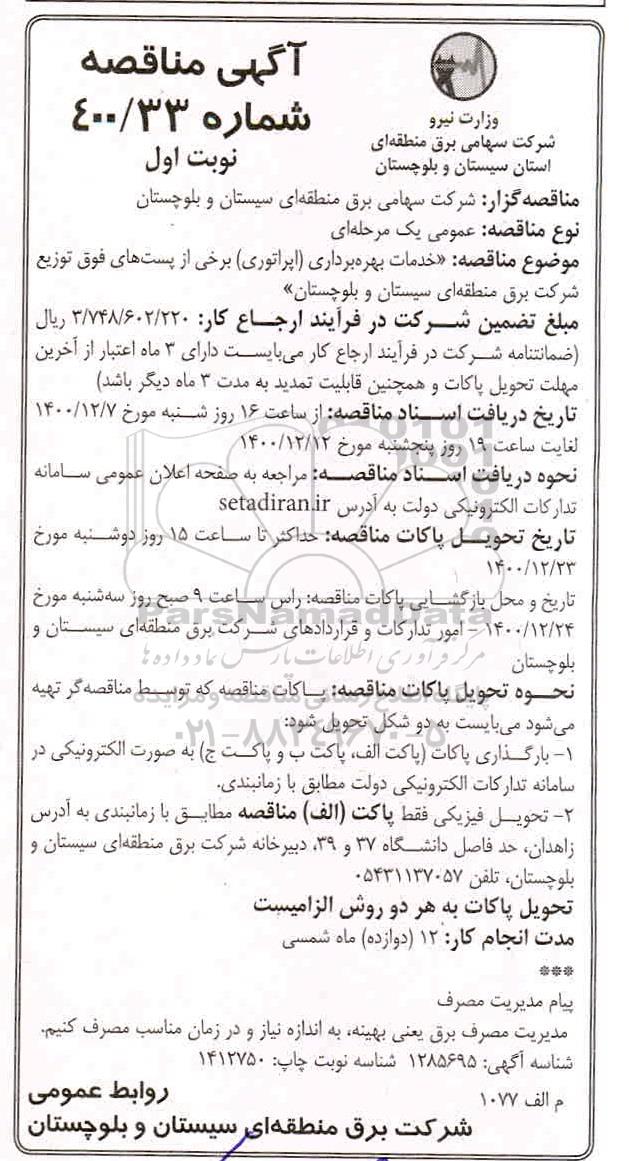 وزارت نیرو
شرکت سهامی برق منطقه‌ای
استان سیستان و بلوچستان
آگهی مناقصه
شماره ۴۰۰/۳۳
نوبت اول
مناقصه‌گزار: شرکت سهامی برق منطقه‌ای سیستان و بلوچستان
نوع مناقصه: عمومی یک مرحله‌ای
موضوع مناقصه: «خدمات بهره‌برداری (اپراتوری) برخی از پست‌های فوق توزیع
شرکت برق منطقه‌ای سیستان و بلوچستان»
مبلغ تضمین شرکت در فرآیند ارجاع کار: ۳/۷۴۸/۶۰۲/۲۲۰ ریال
(ضمانتنامه شرکت در فرآیند ارجاع کار می‌بایست دارای ۳ ماه اعتبار از آخرین
مهلت تحویل پاکات و همچنین قابلیت تمدید به مدت ۳ ماه دیگر باشد)
تاریخ دریافت اسناد مناقصه: از ساعت ۱۶ روز شنبه مورخ ۱۴۰۰/۱۲/۷
لغایت ساعت ۱۹ روز پنجشنبه مورخ ۱۴۰۰/۱۲/۱۲
نحوه دریافت اسناد مناقصه: مراجعه به صفحه اعلان عمومی سامانه
تدارکات الکترونیکی دولت به آدرس setadiran.ir
تاریخ تحویل پاکات مناقصه: حداکثر تا ساعت ۱۵ روز دوشنبه مورخ
۱۴۰۰/۱۲/۲۳
تاریخ و محل بازگشایی پاکات مناقصه: راس ساعت ۹ صبح روز سه‌شنبه مورخ
۱۴۰۰/۱۲/۲۴ - امور تدارکات و قراردادهای شرکت برق منطقه‌ای سیستان و
بلوچستان
نحوه تحویل پاکات مناقصه: پاکات مناقصه که توسط مناقصه‌گر تهیه
می‌شود می‌بایست به دو شکل تحویل شود:
۱- بارگذاری پاکات (پاکت الف، پاکت ب و پاکت ج) به صورت الکترونیکی در
سامانه تدارکات الکترونیکی دولت مطابق با زمانبندی.
۲- تحویل فیزیکی فقط پاکت (الف) مناقصه مطابق با زمانبندی به آدرس
زاهدان، حد فاصل دانشگاه ۳۷ و ۳۹، دبیرخانه شرکت برق منطقه‌ای سیستان و
بلوچستان، تلفن ۰۵۴۳۱۱۳۷۰۵۷
تحویل پاکات به هر دو روش الزامیست
مدت انجام کار: ۱۲ (دوازده) ماه شمسی
***
پیام مدیریت مصرف
مدیریت مصرف برق یعنی بهینه، به اندازه نیاز و در زمان مناسب مصرف کنیم.
شناسه آگهی: ۱۲۸۵۶۹۵ شناسه نوبت چاپ: ۱۴۱۲۷۵۰
م الف ۱۰۷۷
روابط عمومی
شرکت برق منطقه‌ای سیستان و بلوچستان
ParsNamadData
مرکز فرآوری اطلاعات پارس نماد داده‌ها
پایگاه اطلاع رسانی مناقصه و مزایده